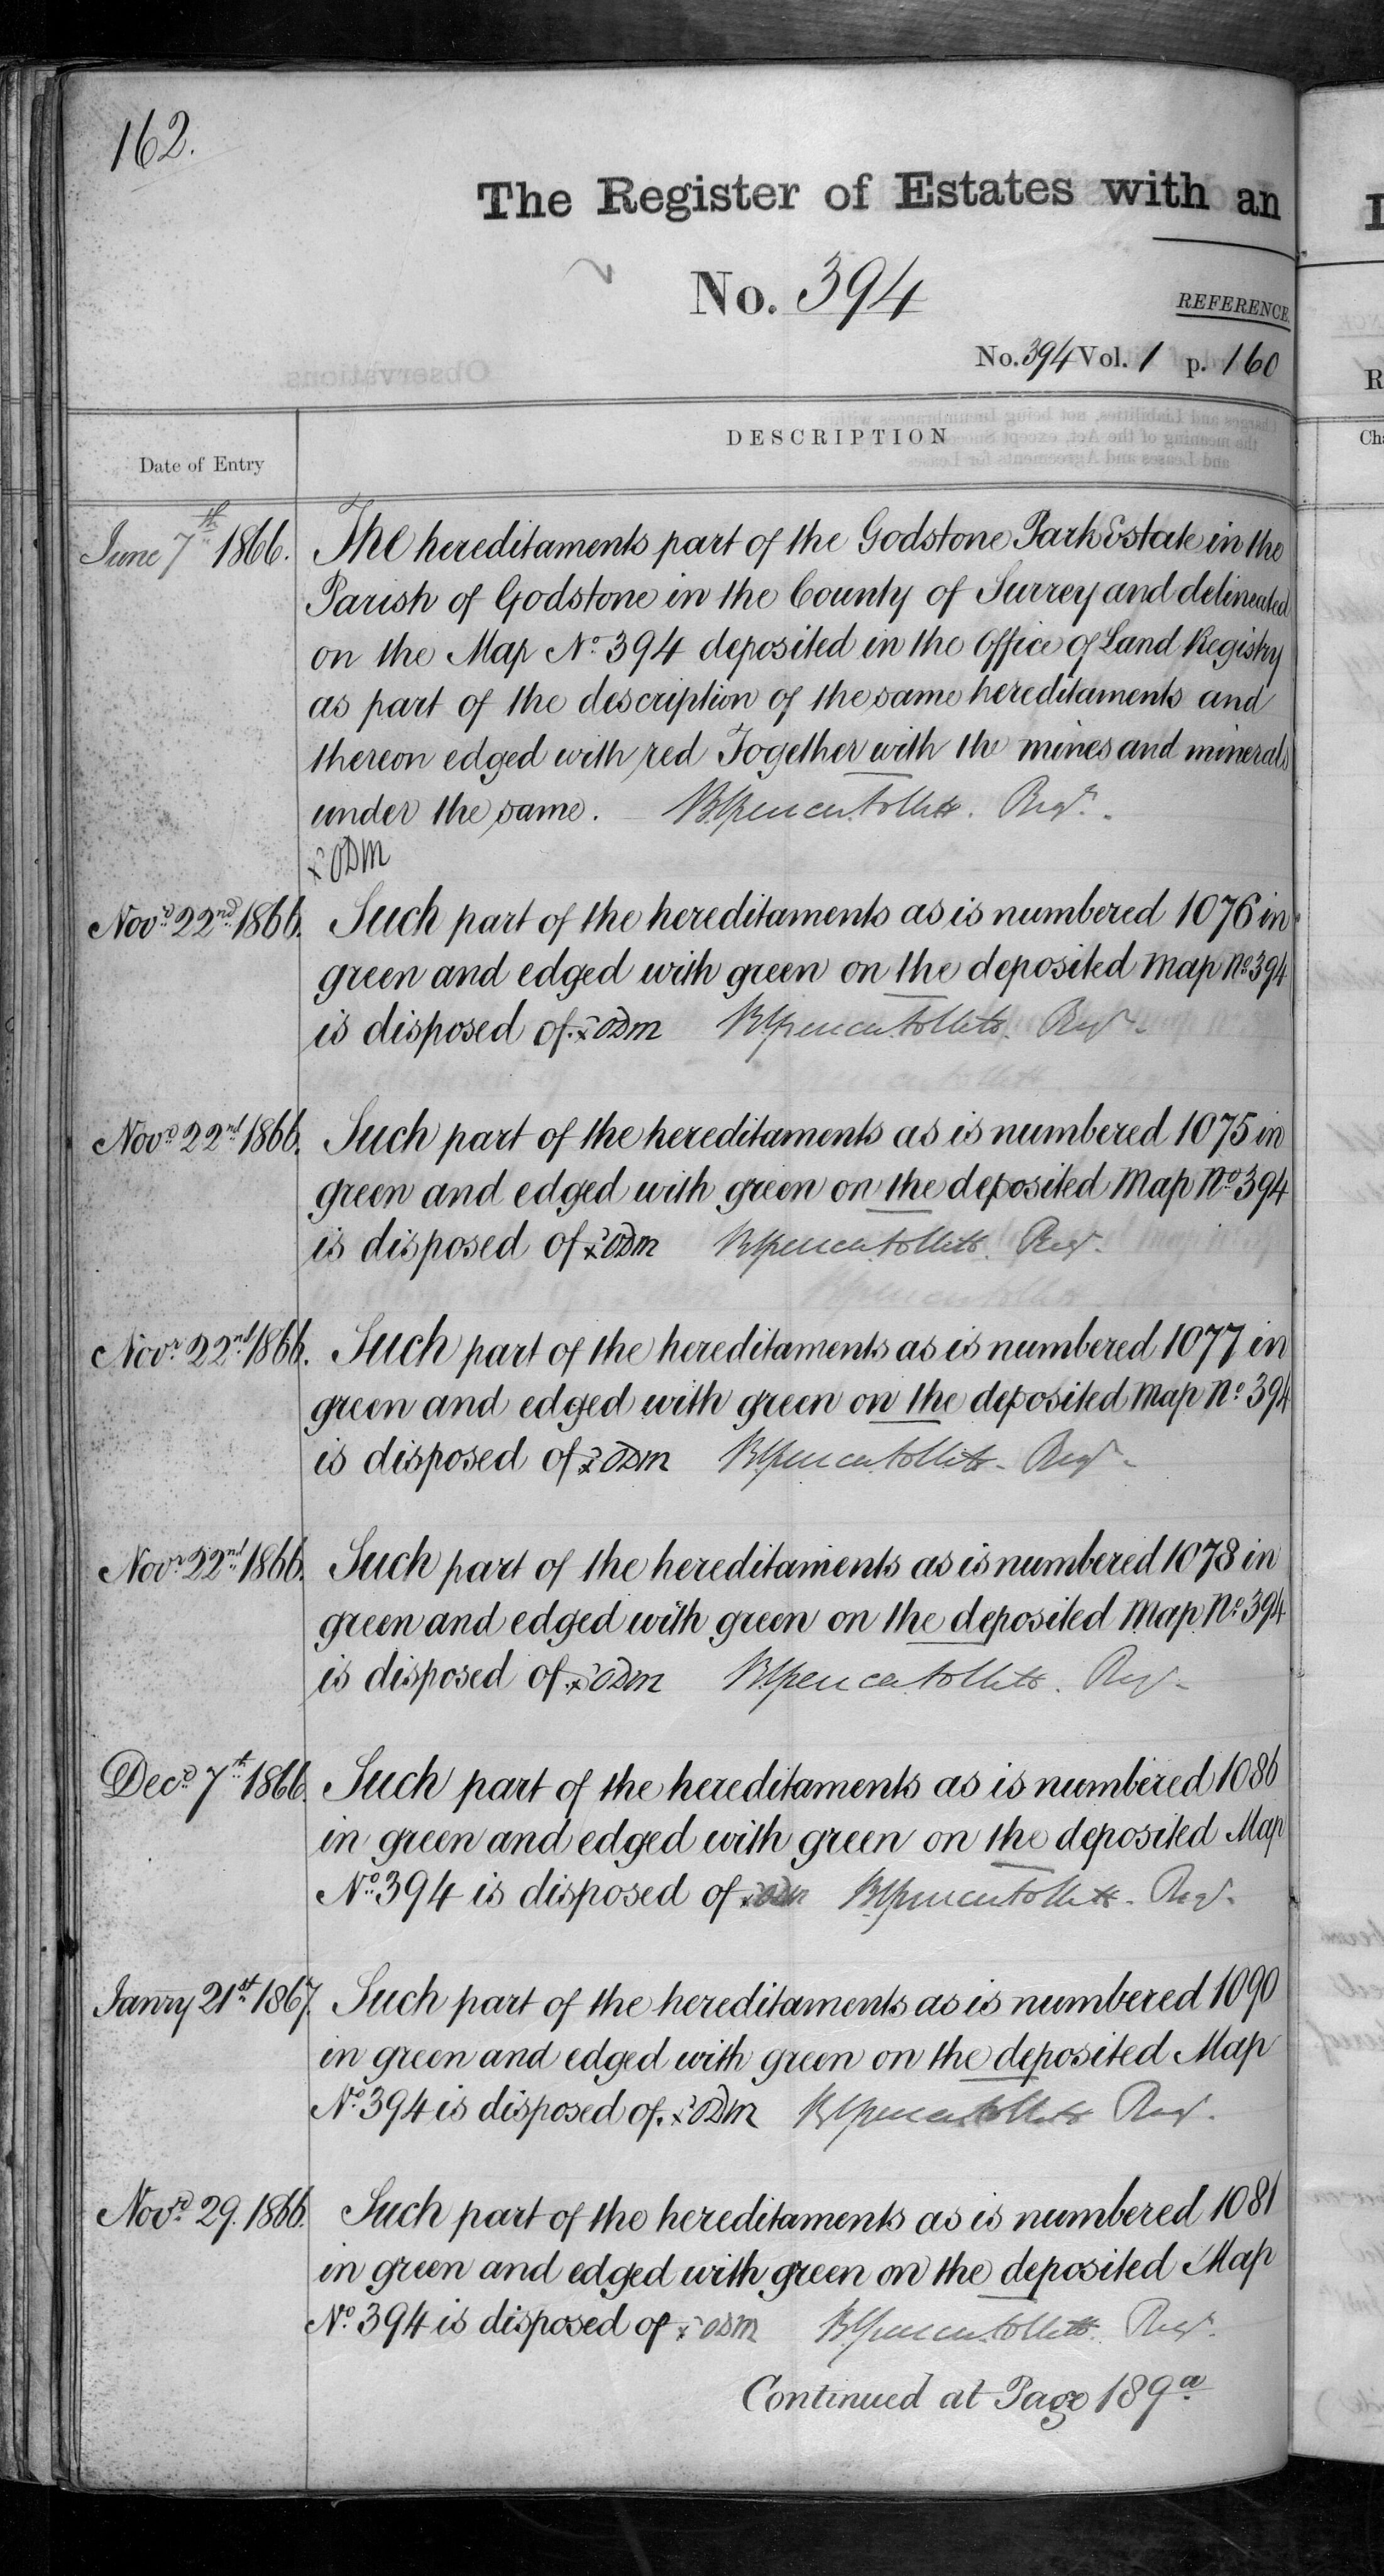 162.
The Register of Estates with an
No. 394
REFERENCE
No. 394 Vol. 1 p. 160
Date of Entry
DESCRIPTION
June 7th 1866. The hereditaments part of the Godstone Park Estate in the
Parish of Godstone in the County of Surrey and delineated
on the Map No. 394 deposited in the Office of Land Registry
as part of the description of the same hereditaments and
thereon edged with red Together with the mines and minerals
under the same. Regr.
Novr. 22nd 1866. Such part of the hereditaments as is numbered 1076 in
green and edged with green on the deposited Map No. 394
is disposed of. Regr.
Novr. 22nd 1866. Such part of the hereditaments as is numbered 1075 in
green and edged with green on the deposited Map No. 394
is disposed of Regr.
Novr. 22nd 1866. Such part of the hereditaments as is numbered 1077 in
green and edged with green on the deposited Map No. 394
is disposed of Regr.
Novr. 22nd 1866. Such part of the hereditaments as is numbered 1078 in
green and edged with green on the deposited Map No. 394
is disposed of. Regr.
Decr. 7th 1866. Such part of the hereditaments as is numbered 1086
in green and edged with green on the deposited Map
No. 394 is disposed of Regr.
Janry 21st 1867. Such part of the hereditaments as is numbered 1090
in green and edged with green on the deposited Map
No. 394 is disposed of. Regr.
Novr. 29. 1866. Such part of the hereditaments as is numbered 1081
in green and edged with green on the deposited Map
No. 394 is disposed of Regr.
Continued at Page 189a